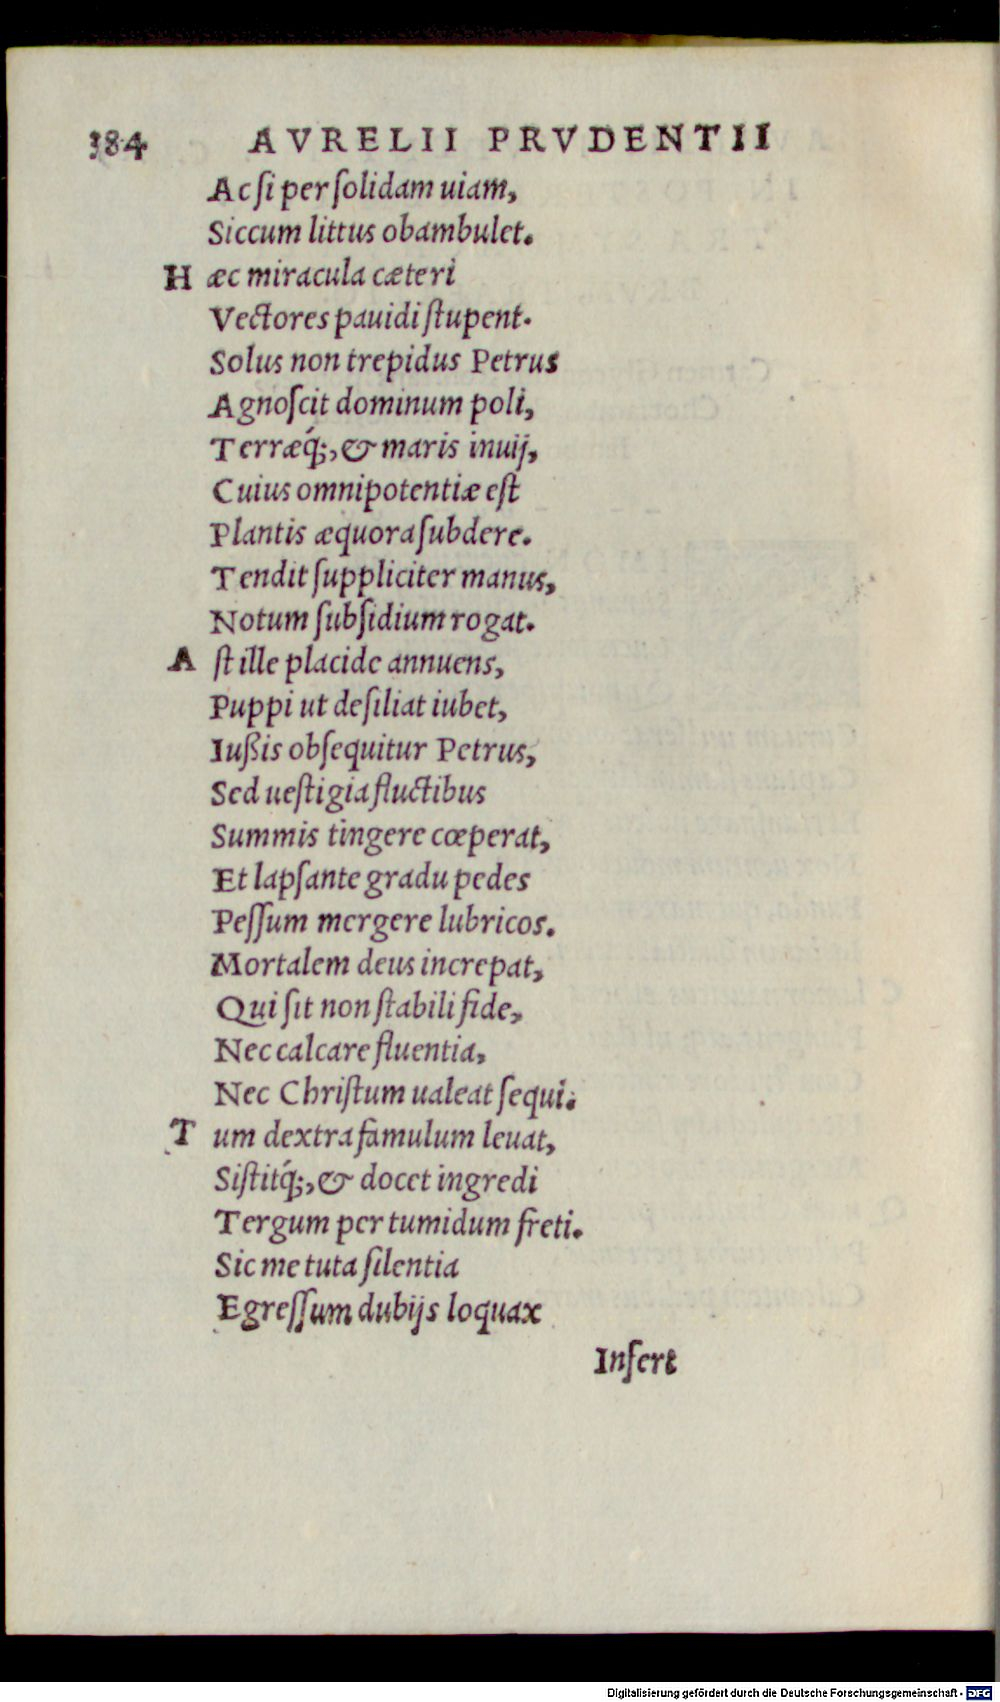 384 AVRELII PRVDENTII
Ac ſi per ſolidam uiam,
Siccum littus obambulet.
H æc miracula cæteri
Vectores pauidi ſtupent.
Solus non trepidus Petrus
Agnoſcit dominum poli,
Terræq́;, & maris inuij,
Cuius omnipotentiæ eſt
Plantis æquora ſubdere.
Tendit ſuppliciter manus,
Notum ſubſidium rogat.
A ſt ille placide annuens,
Puppi ut deſiliat iubet,
Iußis obſequitur Petrus,
Sed ueſtigia fluctibus
Summis tingere cœperat,
Et lapſante gradu pedes
Peſſum mergere lubricos.
Mortalem deus increpat,
Qui ſit non ſtabili fide,
Nec calcare fluentia,
Nec Chriſtum ualeat ſequi.
T um dextra famulum leuat,
Siſtitq́;, & docet ingredi
Tergum per tumidum freti.
Sic me tuta ſilentia
Egreſſum dubijs loquax
Inſert
Digitalisierung gefördert durch die Deutsche Forschungsgemeinschaft - DFG